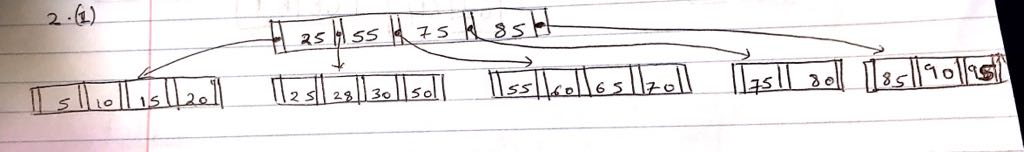 2.(1)
25 55 75 85
5 10 15 20 25 28 30 50 55 60 65 70 75 80 85 90 95